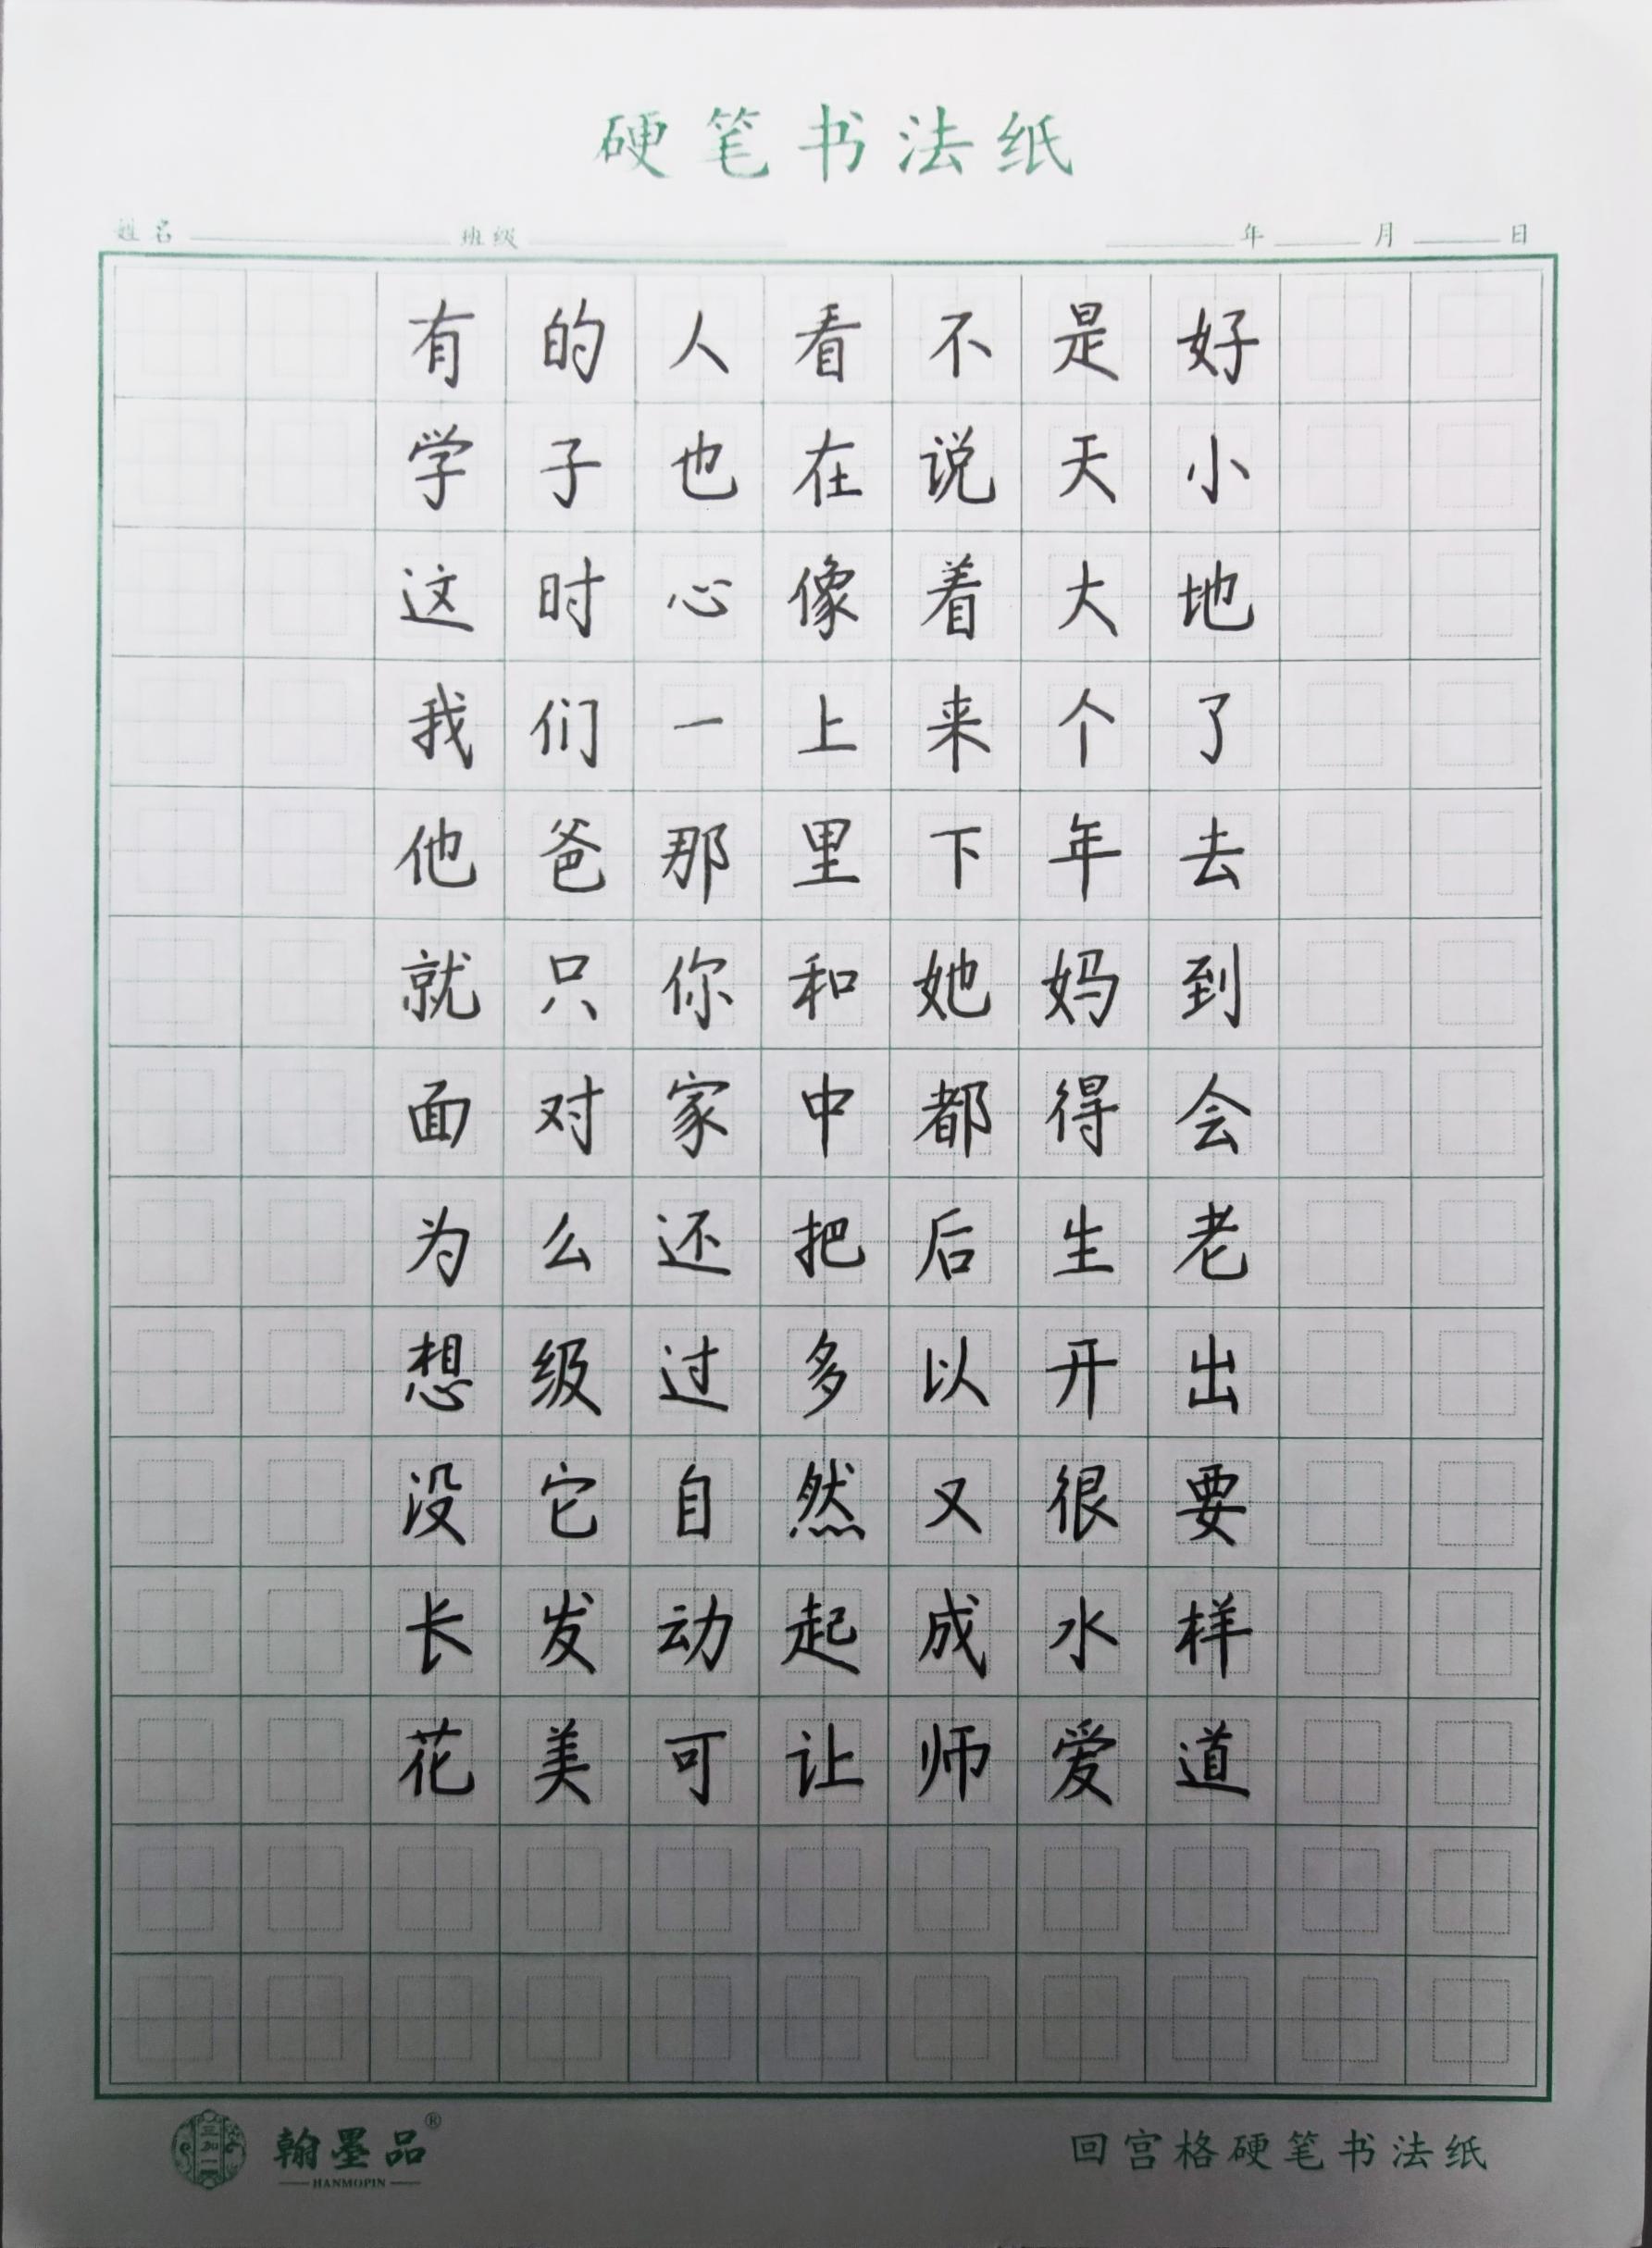 硬笔书法纸
姓名 班级 年 月 日
有的人看不是好
学子也在说天小
这时心像着大地
我们一上来个了
他爸那里下年去
就只你和她妈到
面对家中都得会
为么还把后生老
想级过多以开出
没它自然又很要
长发动起成水样
花美可让师爱道
翰墨品®
HANMOPIN
回宫格硬笔书法纸